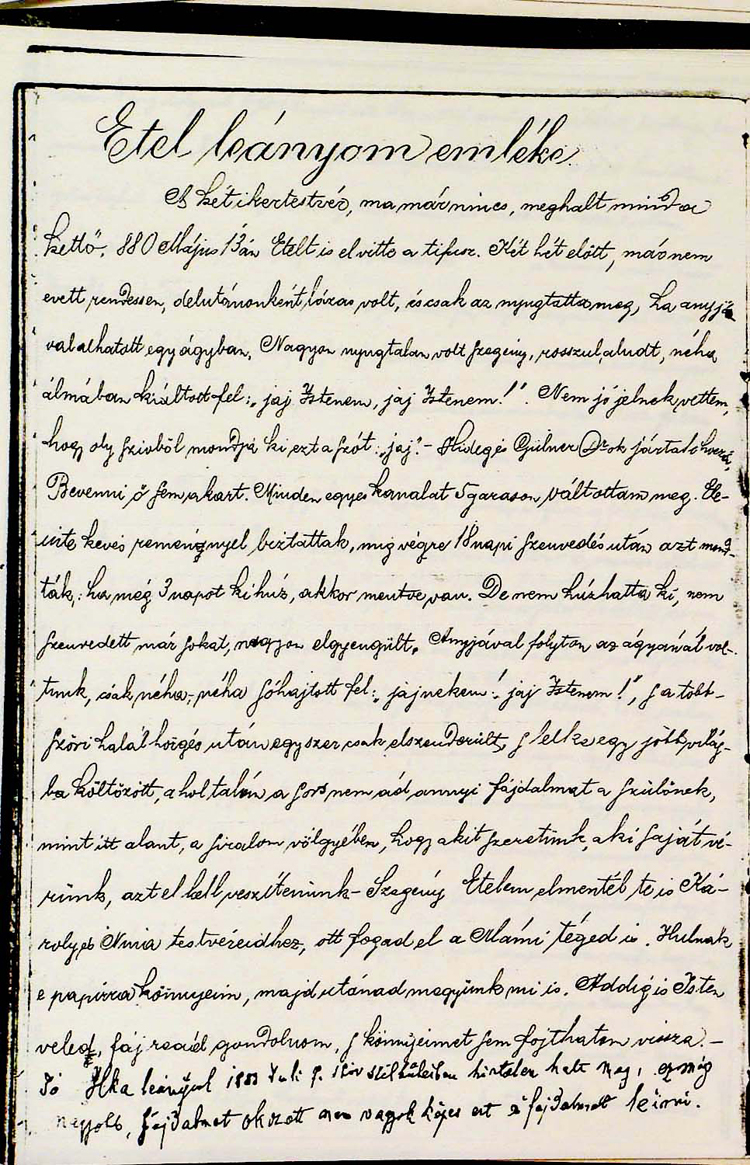 Etel leányom emléke
A két ikertestvér, ma már nincs, meghalt mind a
kettő. 880 Május 13án Etelt is elvitte a tifusz. Két hét előtt, már nem
evett rendessen, délutánonként lázas volt, és csak az nyugtatta meg, ha anyjá
val alhatott egy ágyban, Nagyon nyugtalan volt szegény, rosszul aludt, néha
álmában kiáltott fel: „jaj Istenem, jaj Istenem!". Nem jó jelnek vettem,
hogy oly szivből mondja ki ezt a szót: „jaj." – Hideg és Drok jártak hozzá,
Bevenni ő sem akart. Minden egyes kanalat 5 garason váltottam meg. Ele-
inte kevés reménnyel biztattak, mig végre 18 napi szenvedés után azt mond-
ták: ha még 3 napot kihúz, akkor mentve van. De nem húzhatta ki, nem
szenvedett már sokat, nagyon elgyengült. Anyjával folyton az ágyánál vol-
tunk, csak néha, néha sóhajtott fel: „jaj nekem! jaj Istenem!", s a több-
szöri halál hörgés után egyszer csak elszenderült, s lelke egy jobb világ-
ba költözött, a hol talán a sors nem ád annyi fájdalmat a szülőnek,
mint itt alant, a siralom völgyében, hogy akit szeretünk, a ki saját vé-
rünk, azt el kell veszítenünk – Szegény Etelem elmentél te is Ká-
roly és testvéreidhez, ott fogad el a Mámi téged is. Hulnak
e papirra könnyeim, majd utánad megyünk mi is. Addig is Isten
veled, fáj reád gondolnom, s könnyeimet sem fojthatom vissza. –
Ilka leányúl Juli hirtelen halt meg, ez még
nagyobb, fájdalmat okozott nem vagyok képes ezt a fájdalmat leirni.